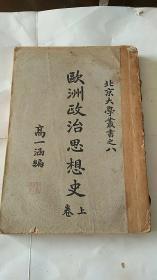 北京大學叢書之八
歐洲政治思想史
卷上
高一涵編